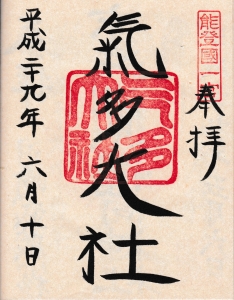 能登國一宮
奉拝
氣多大社
平成二十九年 六月十日